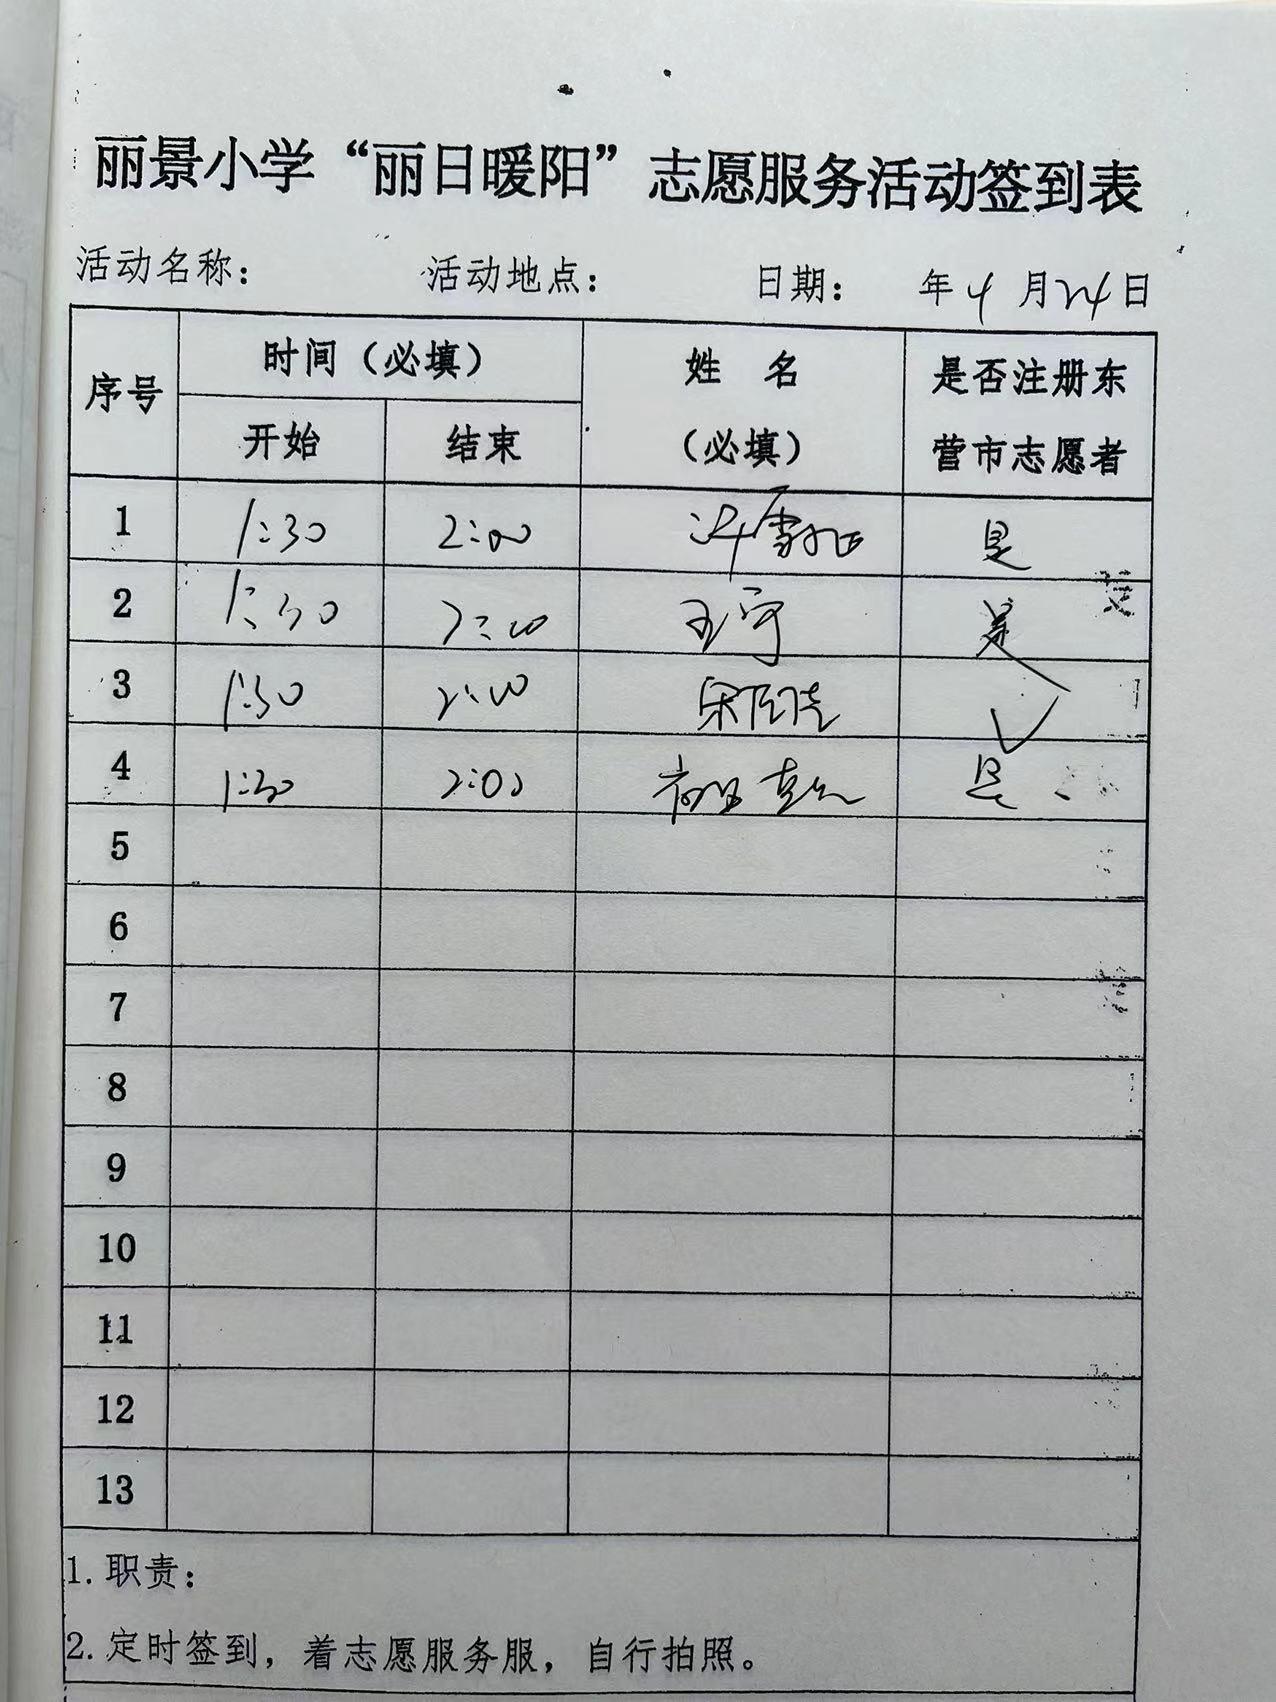 丽景小学“丽日暖阳”志愿服务活动签到表
活动名称: 活动地点: 日期: 年4月24日
序号 时间(必填) 姓 名 是否注册东
开始 结束 (必填) 营市志愿者
1 1:30 2:00 是
2 1:30 2:00 王宁 是
3 1:30 2:00 ✓
4 1:30 2:00 是
5
6
7
8
9
10
11
12
13
1. 职责:
2. 定时签到, 着志愿服务服, 自行拍照。